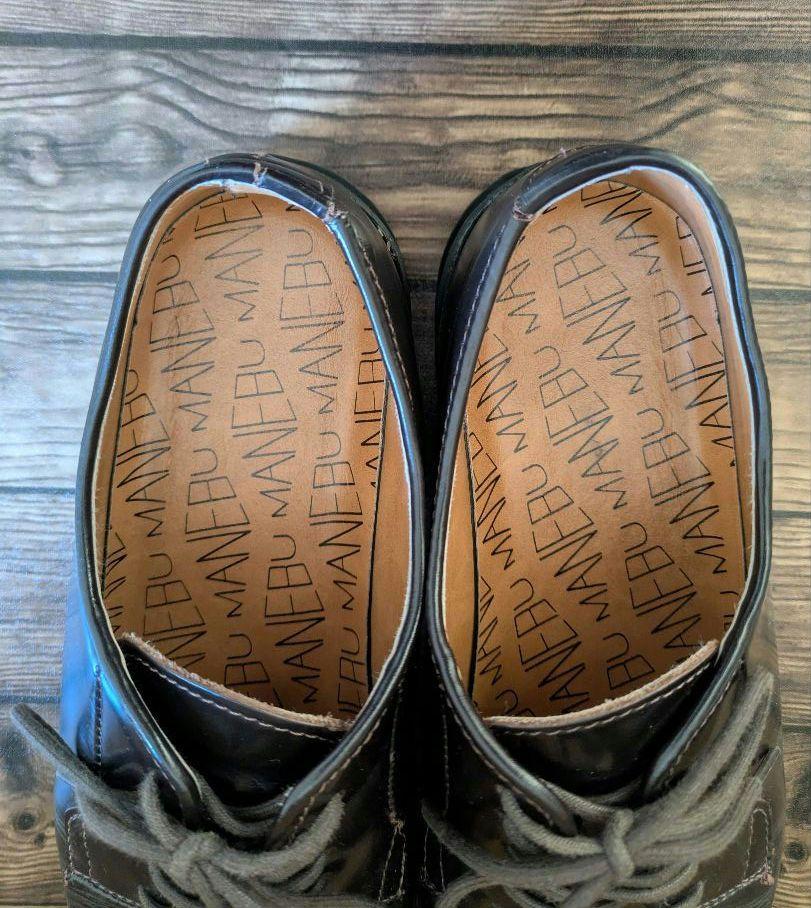 MANEBU MANEBU
MANEBU MANEBU MANEBU
MANEBU MANEBU MANEBU
MANEBU MANEBU
MANEBU MANEBU
MANEBU MANEBU MANEBU
MANEBU MANEBU MANEBU
MANEBU MANEBU